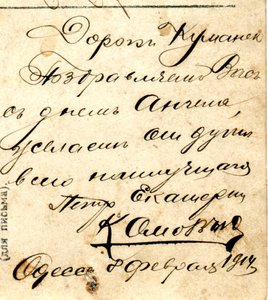 Дорогъ Куманек
Поздравляемъ Васъ
съ днемъ Ангела,
желаемъ отъ души
всего наилучшаго
Петръ Екатерин
Одесс 8 февраля 1914
(для письма).